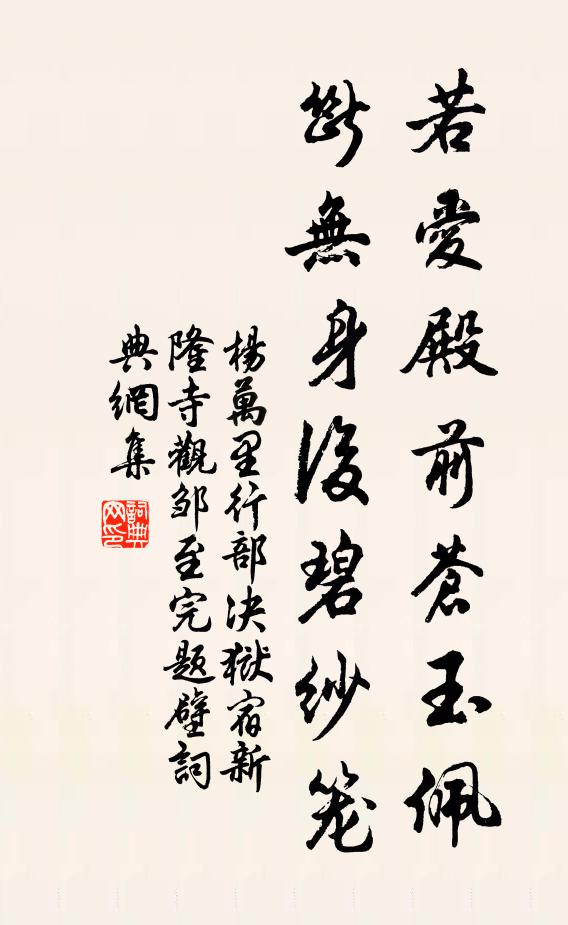 若愛殿前蒼玉佩
斷無身後碧紗笼
楊萬里行部决獄宿新
隆寺觀邹至完题壁詞
典網集
詞典网印